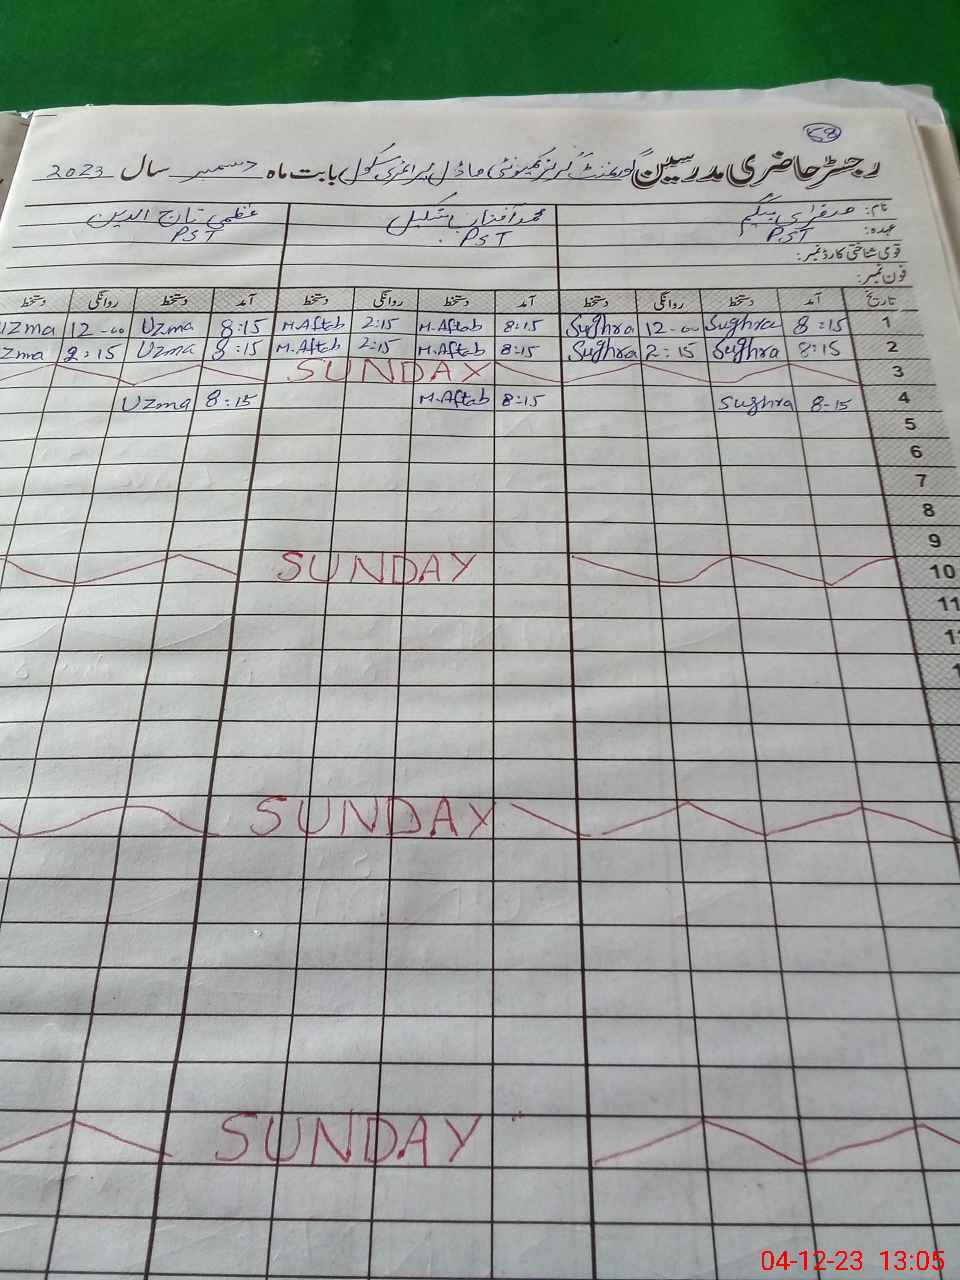 58
رجسٹر حاضری مدرسین گورنمنٹ گرلز کمیونٹی ماڈل پرائمری سکول بابت ماہ دسمبر سال 2023
نام: صغراں بیگم محمد آفتاب شکیل عظمیٰ تاج الدین
عہدہ: PST PST PST
قومی شناختی کارڈ نمبر:
فون نمبر:
تاریخ آمد دستخط روانگی دستخط آمد دستخط روانگی دستخط آمد دستخط روانگی دستخط
1 8:15 Sughra 12-00 Sughra 8:15 M.Aftab 2:15 M.Aftab 8:15 Uzma 12-00 Uzma
2 8:15 Sughra 2:15 Sughra 8:15 M.Aftab 2:15 M.Aftab 8:15 Uzma 2:15 Uzma
3 SUNDAY
4 8-15 Sughra 8:15 M.Aftab 8:15 Uzma
5
6
7
8
9
10 SUNDAY
11
SUNDAY
SUNDAY
04-12-23 13:05